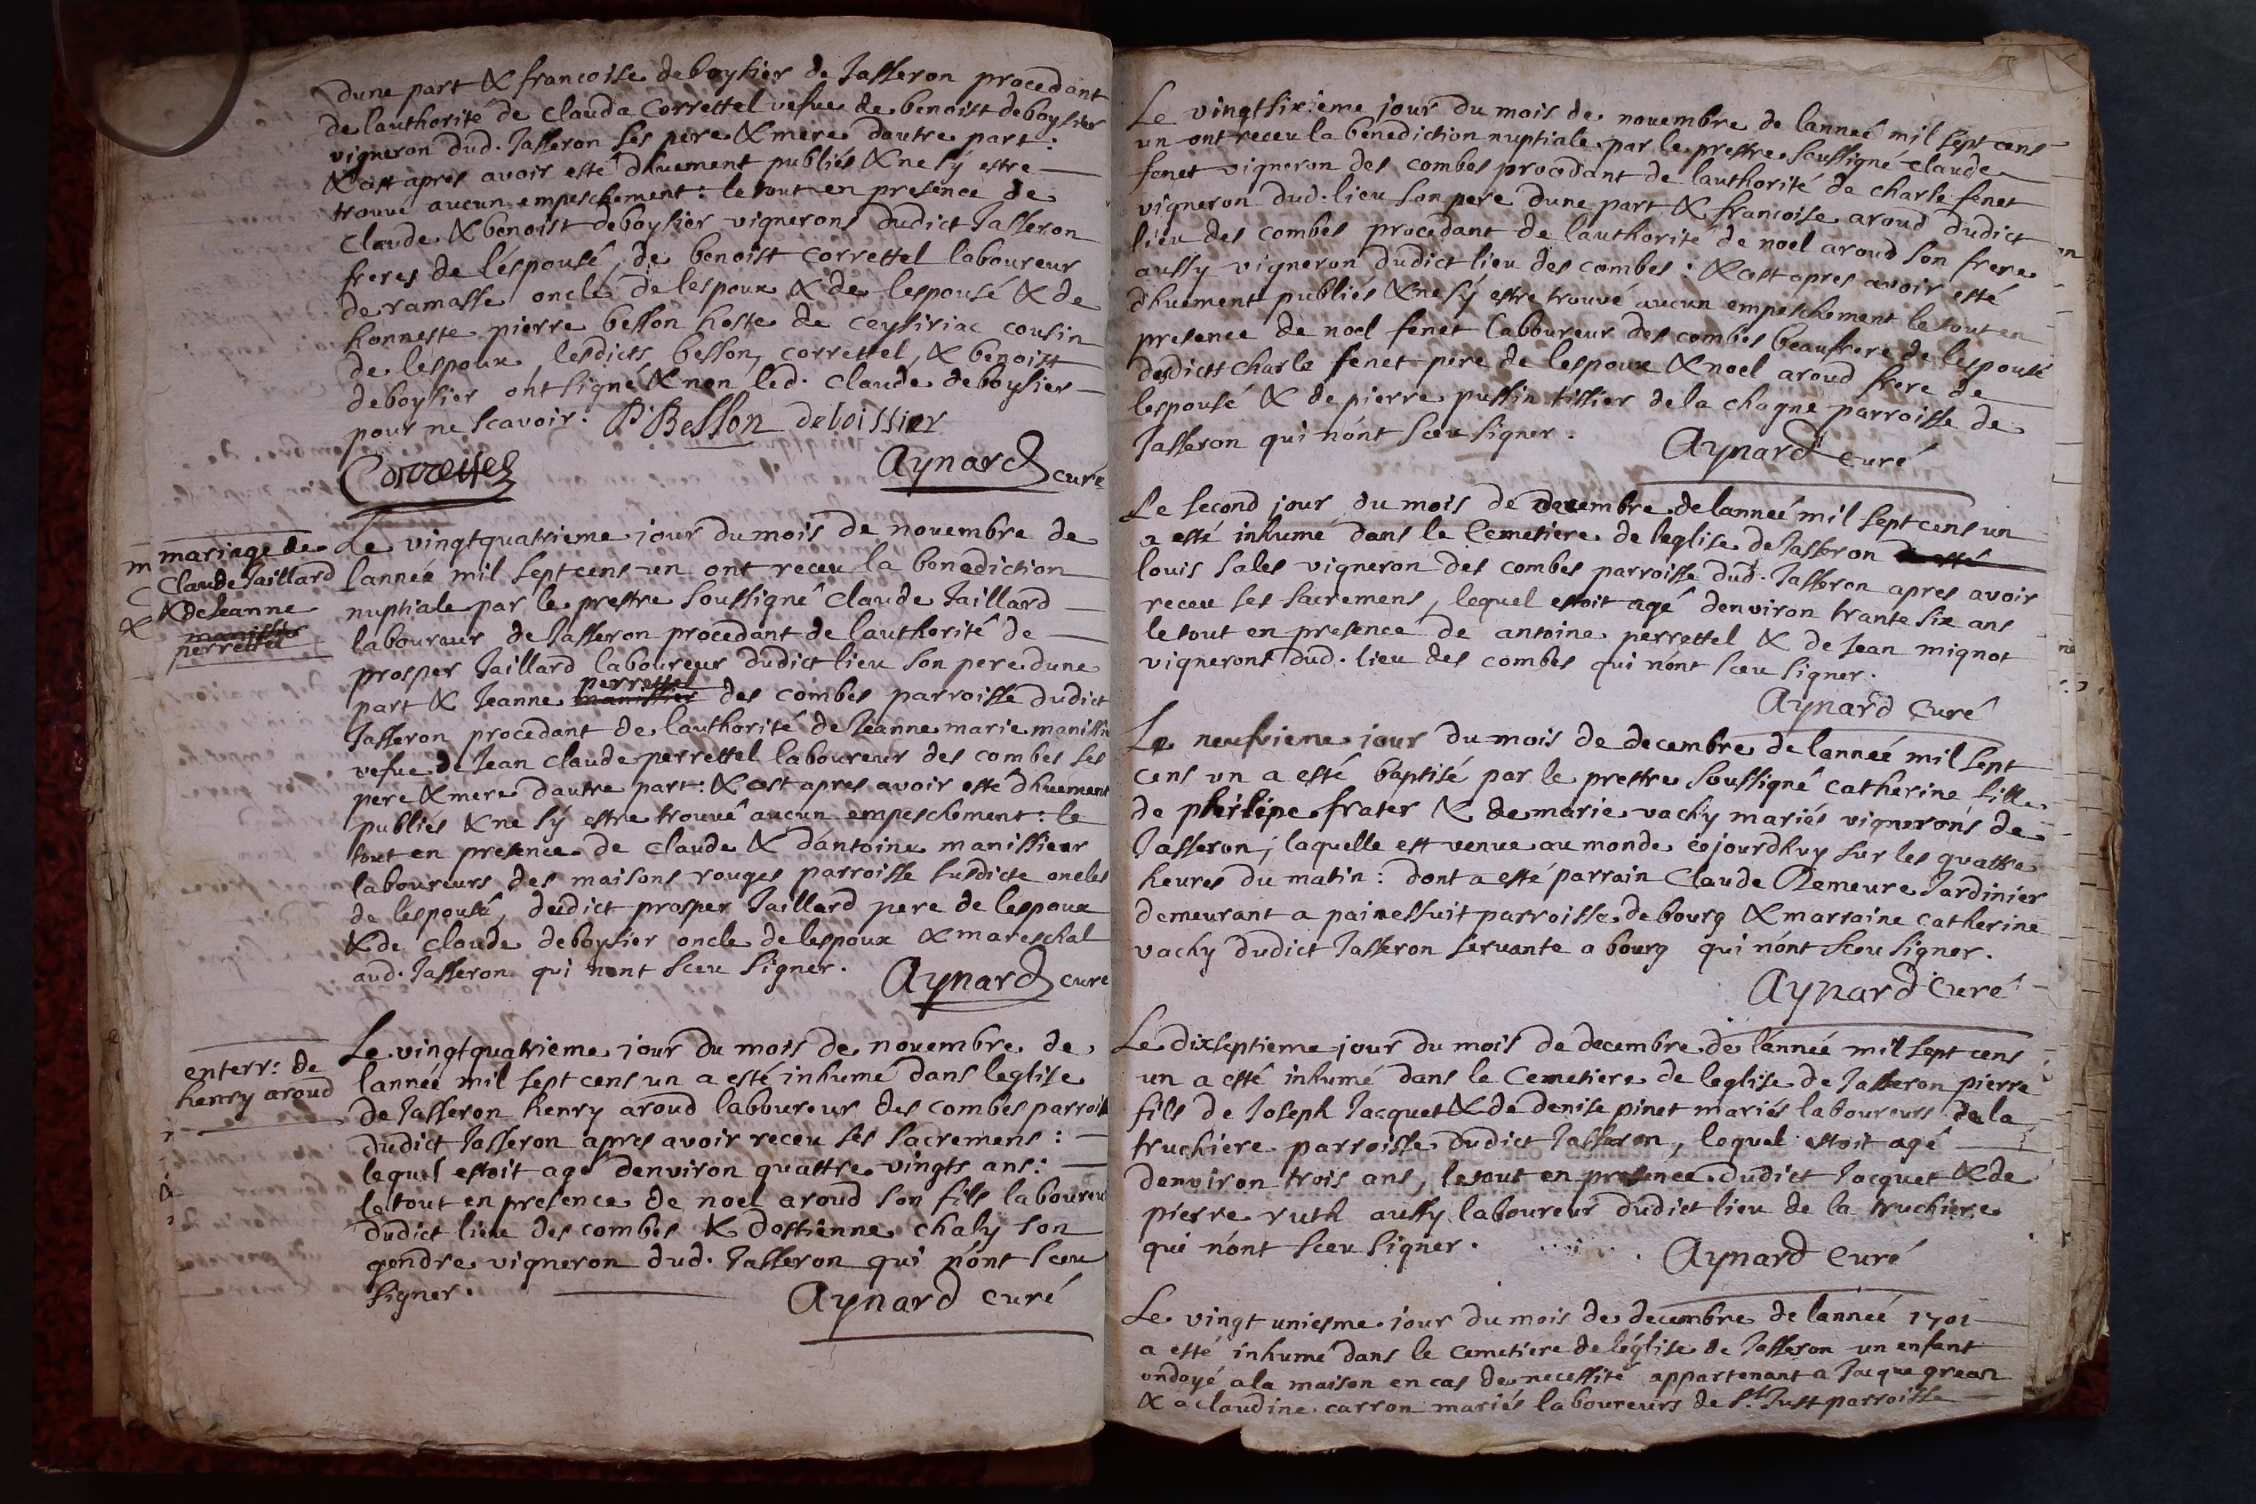 dune part & francoise deboysier de Jasseron procedant
de lauthorité de clauda correttel vefue de benoist deboysier
vigneron dud. Jasseron ses pere & mere dautre part:
& cest apres avoir esté dhuement publiés & ne sÿ estre
trouvé aucun empeschement: le tout en presence de
claude & benoist deboysier vignerons dudict Jasseron
freres de léspousé, de benoist correttel laboureur
de ramasse oncle de lespoux & de lespousé & de
honneste pierre besson hoste de ceysiriac cousin
de lespoux lesdicts besson, correttel, & benoist
deboysier ont signé & non led. claude deboysier
pour ne scavoir. P. Besson deboissier
Correttel Aynard curé
mariage de
Claude Jaillard
& de Jeanne
manissier
perrettel
Le vingtquatrieme jour du mois de nouembre de
lannée mil sept cens un ont receu la benediction
nuptiale par le prestre soussigné claude Jaillard
laboureur de Jasseron procedant de lauthorité de
prosper Jaillard laboureur dudict lieu son pere dune
perrettel
part & Jeanne manissier des combes parroisse dudict
Jasseron procedant de lauthorité de Jeanne marie manissie
vefue de Jean claude perrettel laboureur des combes ses
pere & mere dautre part: & cest apres avoir esté dhuement
publiés & ne sÿ estre trouvé aucun empeschement: le
tout en presence de claude & dántoine manissier
laboureurs des maisons rouges parroisse susdicte oncles
de léspousé, dudict prosper Jaillard pere de lespoux
& de claude deboysier oncle de lespoux & mareschal
aud. Jasseron qui nont sceu signer. Aynard curé
enterr: de
henry aroud
Le vingtquatrieme jour du mois de nouembre de
lannée mil sept cens un a esté inhumé dans leglise
de Jasseron henry aroud laboureur des combes parroiss
dudict Jasseron apres avoir receu ses sacremens:
lequel estoit agé denviron quattre vingts ans:
le tout en presence de noel aroud son fils laboureu
dudict lieu des combes & destienne chaly son
gendre vigneron dud. Jasseron qui nónt sceu
signer. Aynard curé
Le vingtsixieme jour du mois de nouembre de lanneé mil sept cens
un ont receu la benediction nuptiale par le prestre soussigné claude
fenet vigneron des combes procedant de lauthorité de charle fenet
vigneron dud. lieu son pere dune part & francoise aroud dudict
lieu des combes procedant de lauthorité de noel aroud son frere
aussy vigneron dudict lieu des combes: & cest apres avoir esté
dhuement publiés & ne sÿ estre trouvé aucun empeschement le tout en
presence de noel fenet laboureur des combes beaufrere de lespousé
desdicts charle fenet pere de lespoux & noel aroud frere de
lespousé & de pierre pussin tissier de la chagne parroisse de
Jasseron qui nónt sceu signer. Aynard curé
Le second jour du mois de decembre de lanneé mil sept cens un
a esté inhumé dans le Cemetiere de leglise de Jasseron
louis sales vigneron des combes parroisse dud. Jasseron apres avoir
receu ses sacremens, lequel estoit agé denviron trante six ans
le tout en presence de antoine perrettel & de Jean mignot
vignerons dud. lieu des combes qui nónt sceu signer.
Aynard Curé
Le neufvieme jour du mois de decembre de lanneé mil sept
cens un a esté baptisé par le prestre soussigné catherine fille
de philipe frater & de marie vachy mariés vignerons de
Jasseron, laquelle est venue au monde éojourdhuy sur les quattre
heures du matin: dont a esté parrain Claude Remeure Jardinier
demeurant a painessuit parroisse de bourg & marraine catherine
vachy dudict Jasseron servante a bourg qui nónt sceu signer.
Aynard Curé
Le dixseptieme jour du mois de decembre de lánnée mil sept cens
un a esté inhumé dans le Cemetiere de leglise de Jasseron pierre
fils de Joseph Jacquet & de denise pinet mariés laboureurs de la
truchiere parroisse dudict Jasseron, lequel estoit agé
denviron trois ans, le tout en presence dudict Jacquet & de
pierre ruth aussy laboureur dudict lieu de la truchiere
qui nónt sceu signer. Aynard Curé
Le vingt uniesme jour du mois de decembre de lanneé 1701
a esté inhumé dans le cemetiere de léglise de Jasseron un enfant
ondoyé a la maison en cas de necessité appartenant a Jacque grean
& a claudine carron mariés laboureurs de St. Just parroisse